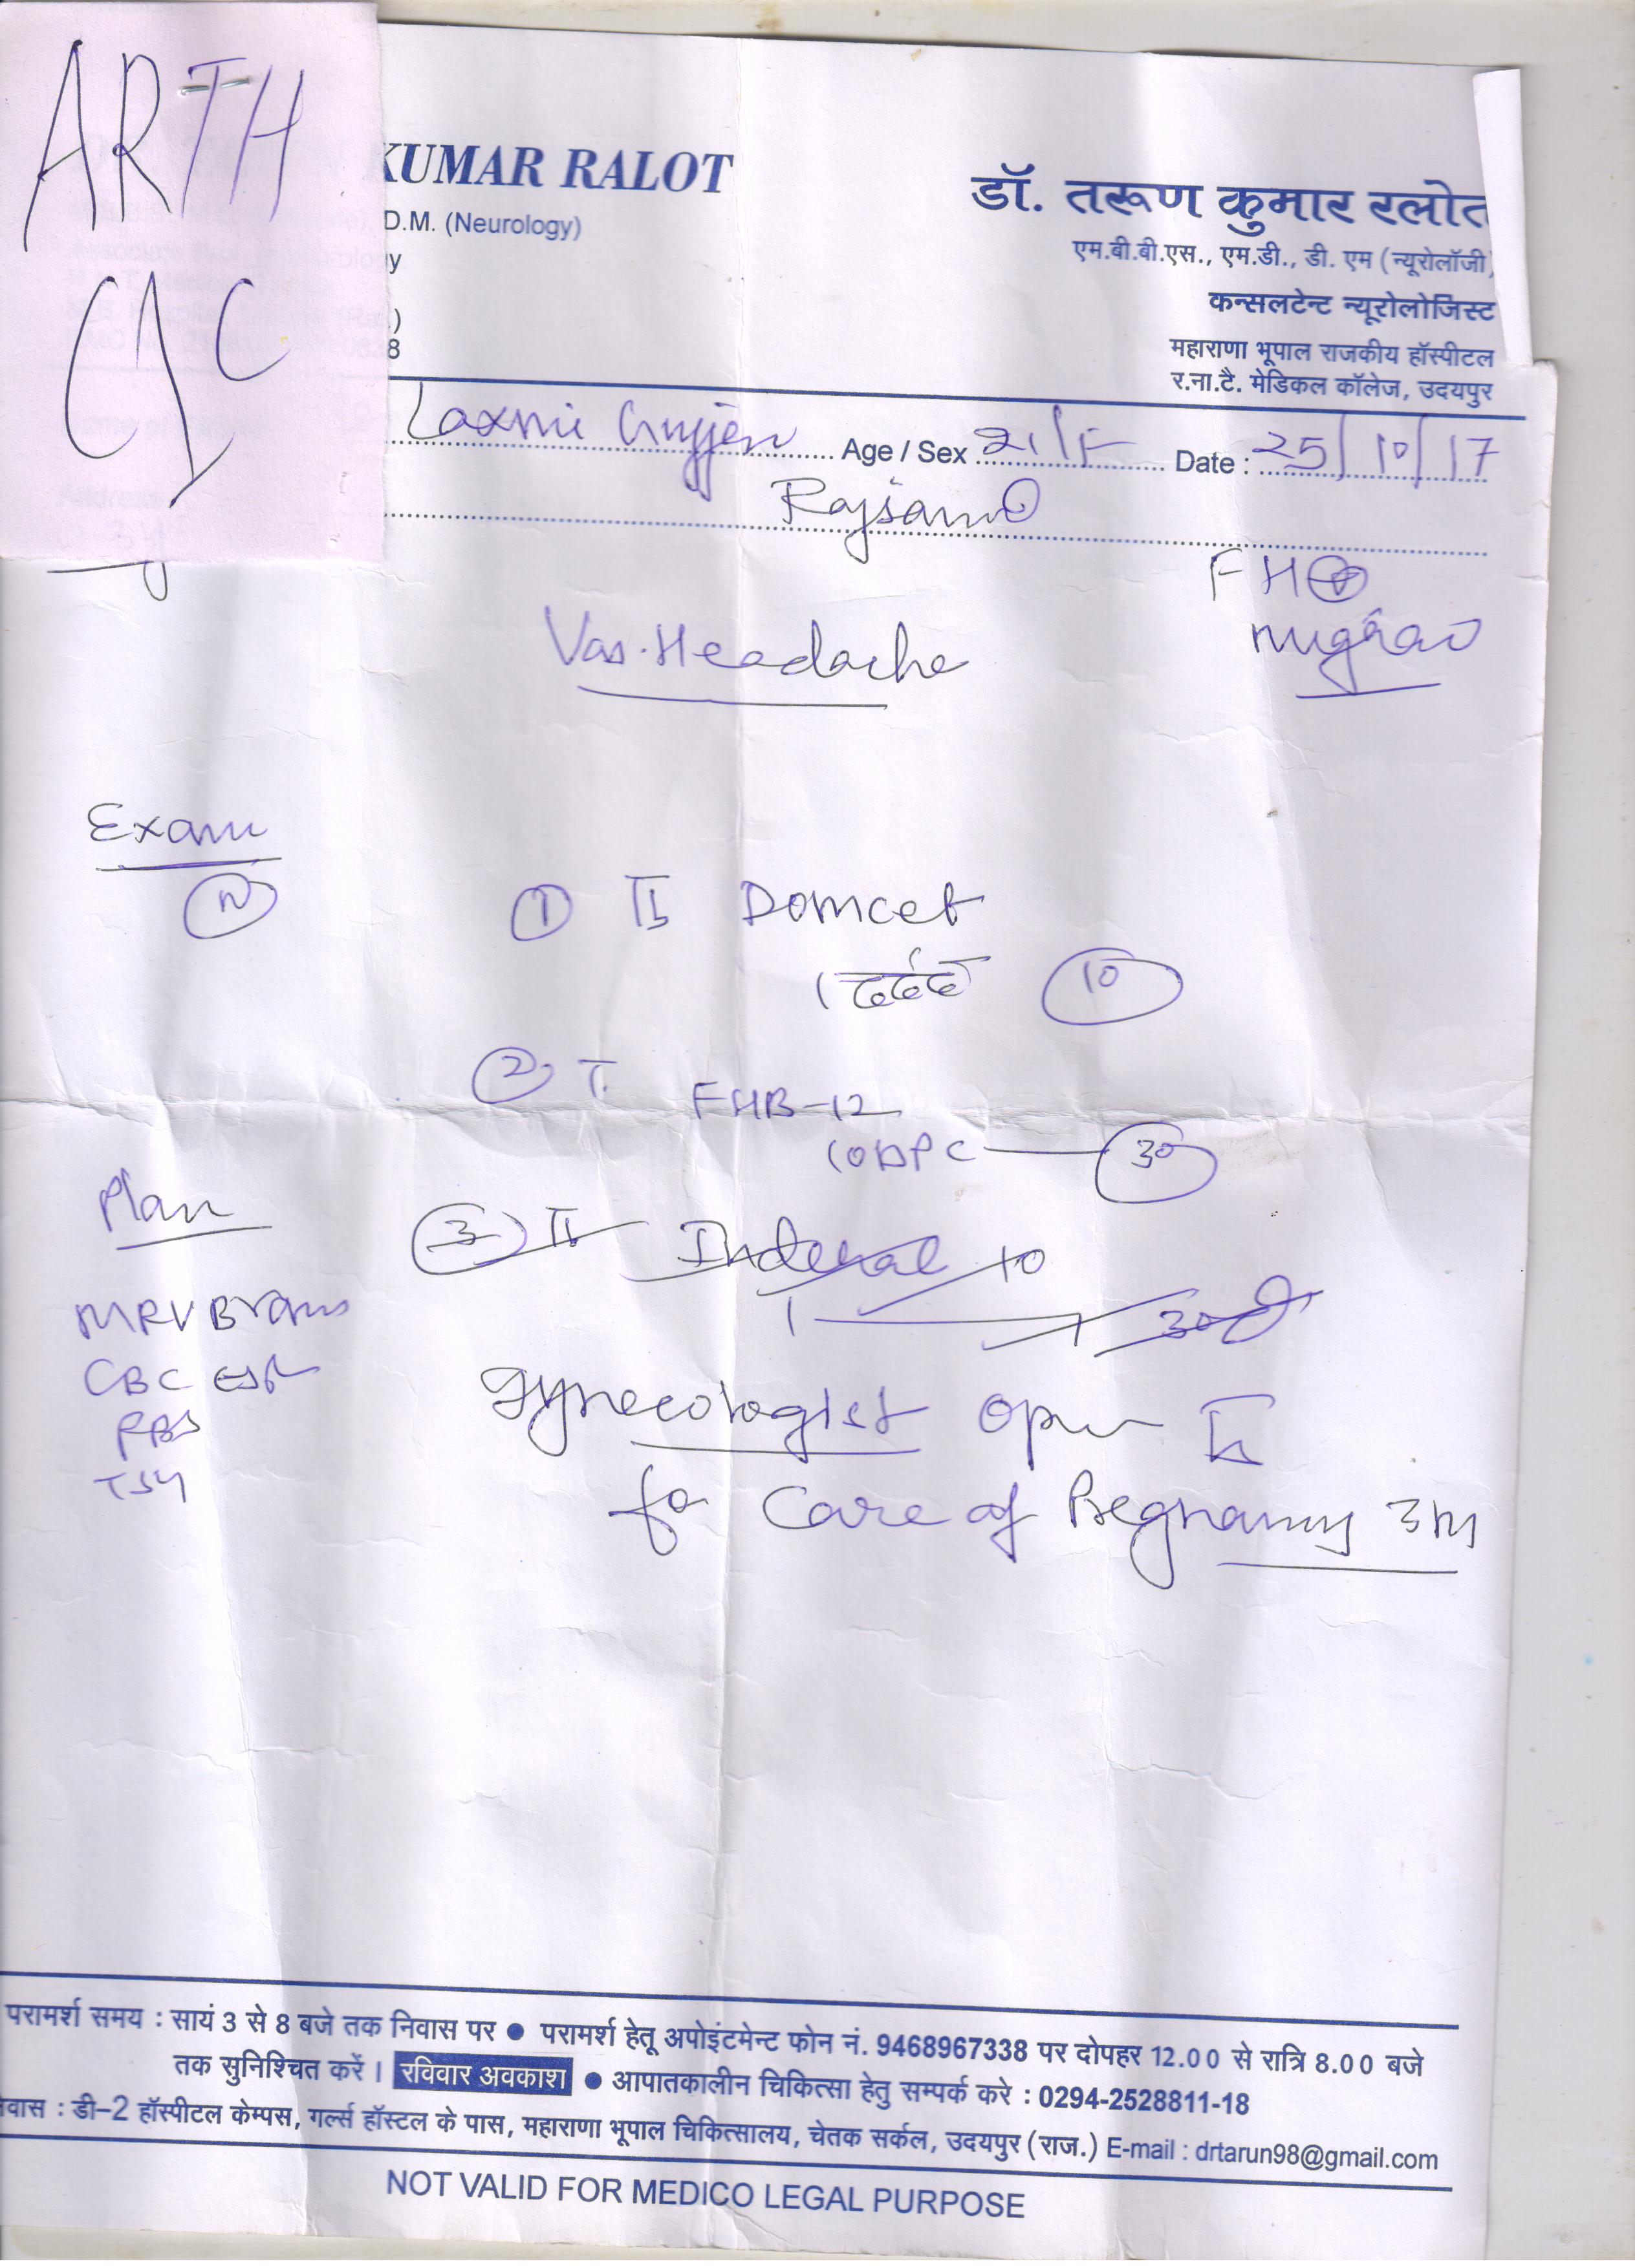 ARTH
CIC
KUMAR RALOT
D.M. (Neurology)
y
)
8
डॉ. तरूण कुमार रलोत
एम.बी.बी.एस., एम.डी., डी. एम (न्यूरोलॉजी)
कन्सलटेन्ट न्यूरोलोजिस्ट
महाराणा भूपाल राजकीय हॉस्पीटल
र.ना.टै. मेडिकल कॉलेज, उदयपुर
Laxmi Gujjer Age / Sex 21/F Date : 25/10/17
FH⊕
Vas. Headache
Exam
N
① Domcet
10
② T. FHB-12
30
Plan
③ Inderal 10
30
CBC ESR
Gynecologist
for Care of Pregnancy 3M
परामर्श समय : सायं 3 से 8 बजे तक निवास पर ● परामर्श हेतू अपोइंटमेन्ट फोन नं. 9468967338 पर दोपहर 12.00 से रात्रि 8.00 बजे
तक सुनिश्चित करें । रविवार अवकाश ● आपातकालीन चिकित्सा हेतु सम्पर्क करे : 0294-2528811-18
नेवास : डी–2 हॉस्पीटल केम्पस, गर्ल्स हॉस्टल के पास, महाराणा भूपाल चिकित्सालय, चेतक सर्कल, उदयपुर (राज.) E-mail : drtarun98@gmail.com
NOT VALID FOR MEDICO LEGAL PURPOSE